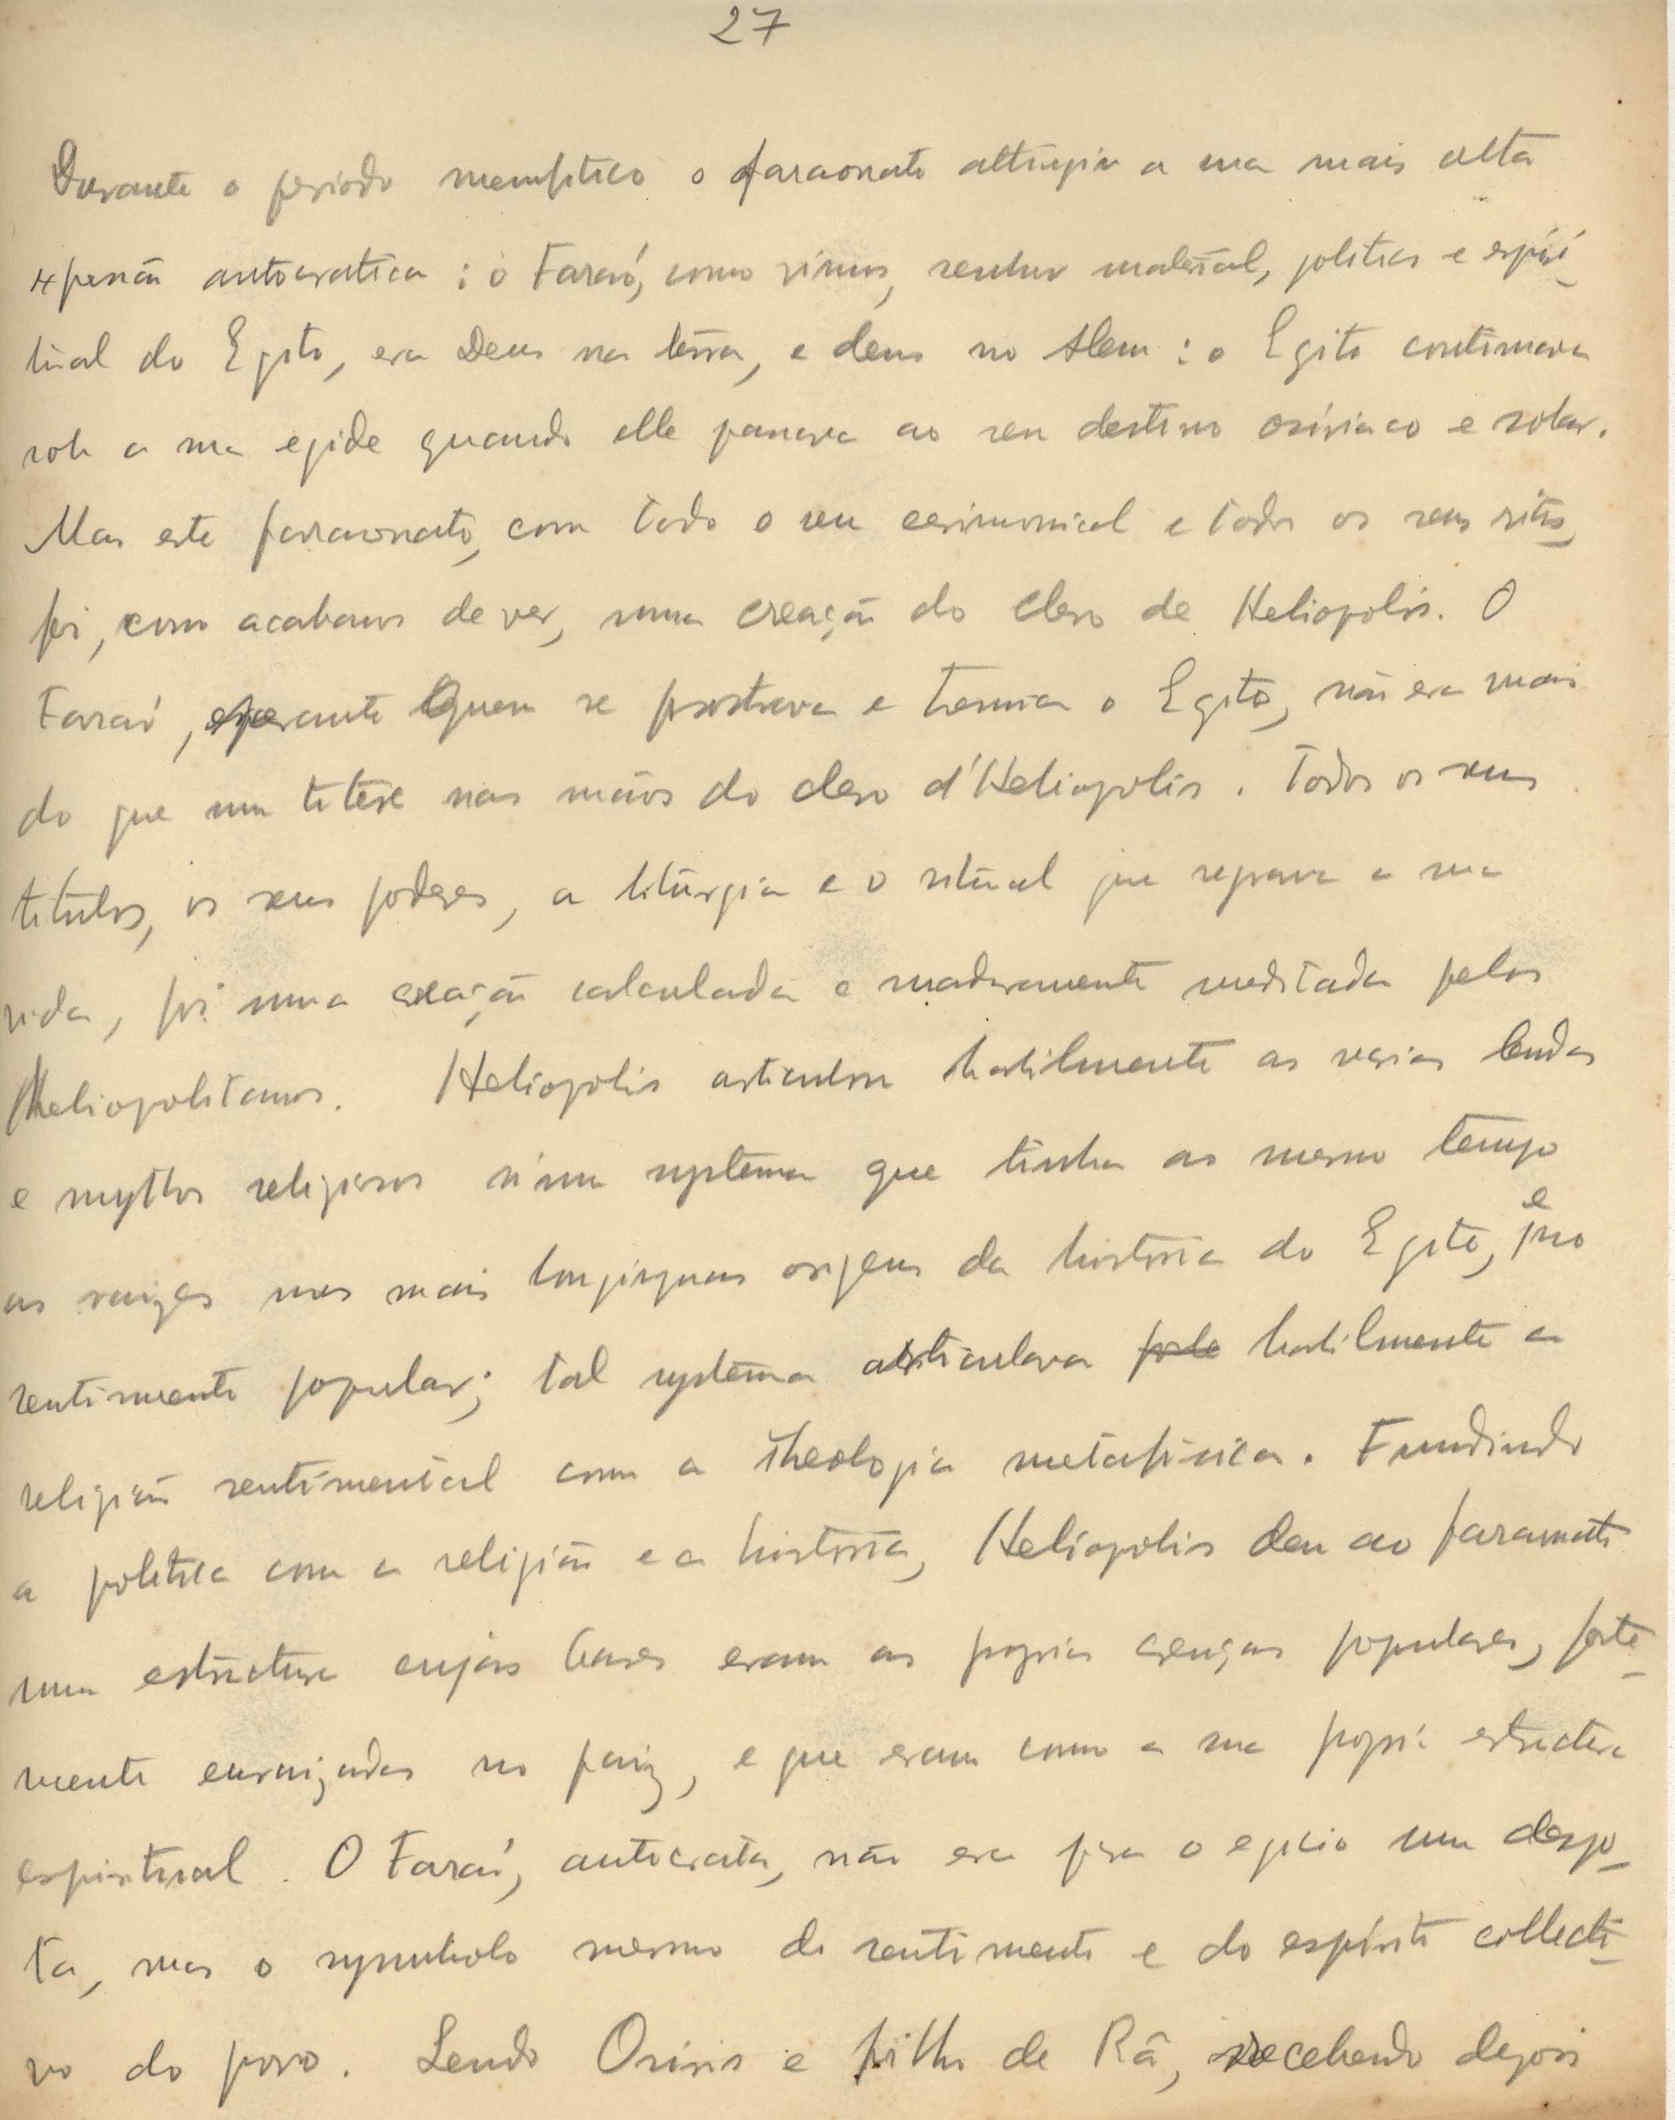 27
Durante o periodo memfitico o faraonato attingiu a sua mais alta
expressão autocratica : o Faraó, como vimos, senhor material, politico e espiri-
tual do Egito, era Deus na terra, e deus no Alem : o Egito continuava
sob a sua egide quando elle passava ao seu destino osiriaco e solar.
Mas este faraonato, com todo o seu cerimonical e todos os seus ritos,
foi, como acabamos de ver, uma creação do clero de Heliopolis. O
Faraó, perante quem se prostrava e tremia o Egito, não era mais
do que um titere nas mãos do clero d'Heliopolis. Todos os seus
titulos, os seus poderes, a liturgia e o ritual que regrava a sua
vida, foi uma creação calculada e maduramente meditada pelos
Heliopolitanos. Heliopolis articulou habilmente as varias lendas
e mythos religiosos n'um systema que tinha ao mesmo tempo
as raizes nas mais longinquas origens da historia do Egito, e no
sentimento popular; tal systema articulava habilmente a
religião sentimental com a theologia metafisica. Fundindo
a politica com a religião e a historia, Heliopolis deu ao faraonato
uma estructura cujas bases eram as proprias crenças populares, forte-
mente enraizadas no paiz, e que eram como a sua propria estructura
espiritual. O Faraó, autocrata, não era para o egicio um despo-
ta, mas o symbolo mesmo do sentimento e do espirito collecti-
vo do povo. Sendo Osiris e filho de Râ, recebendo depois